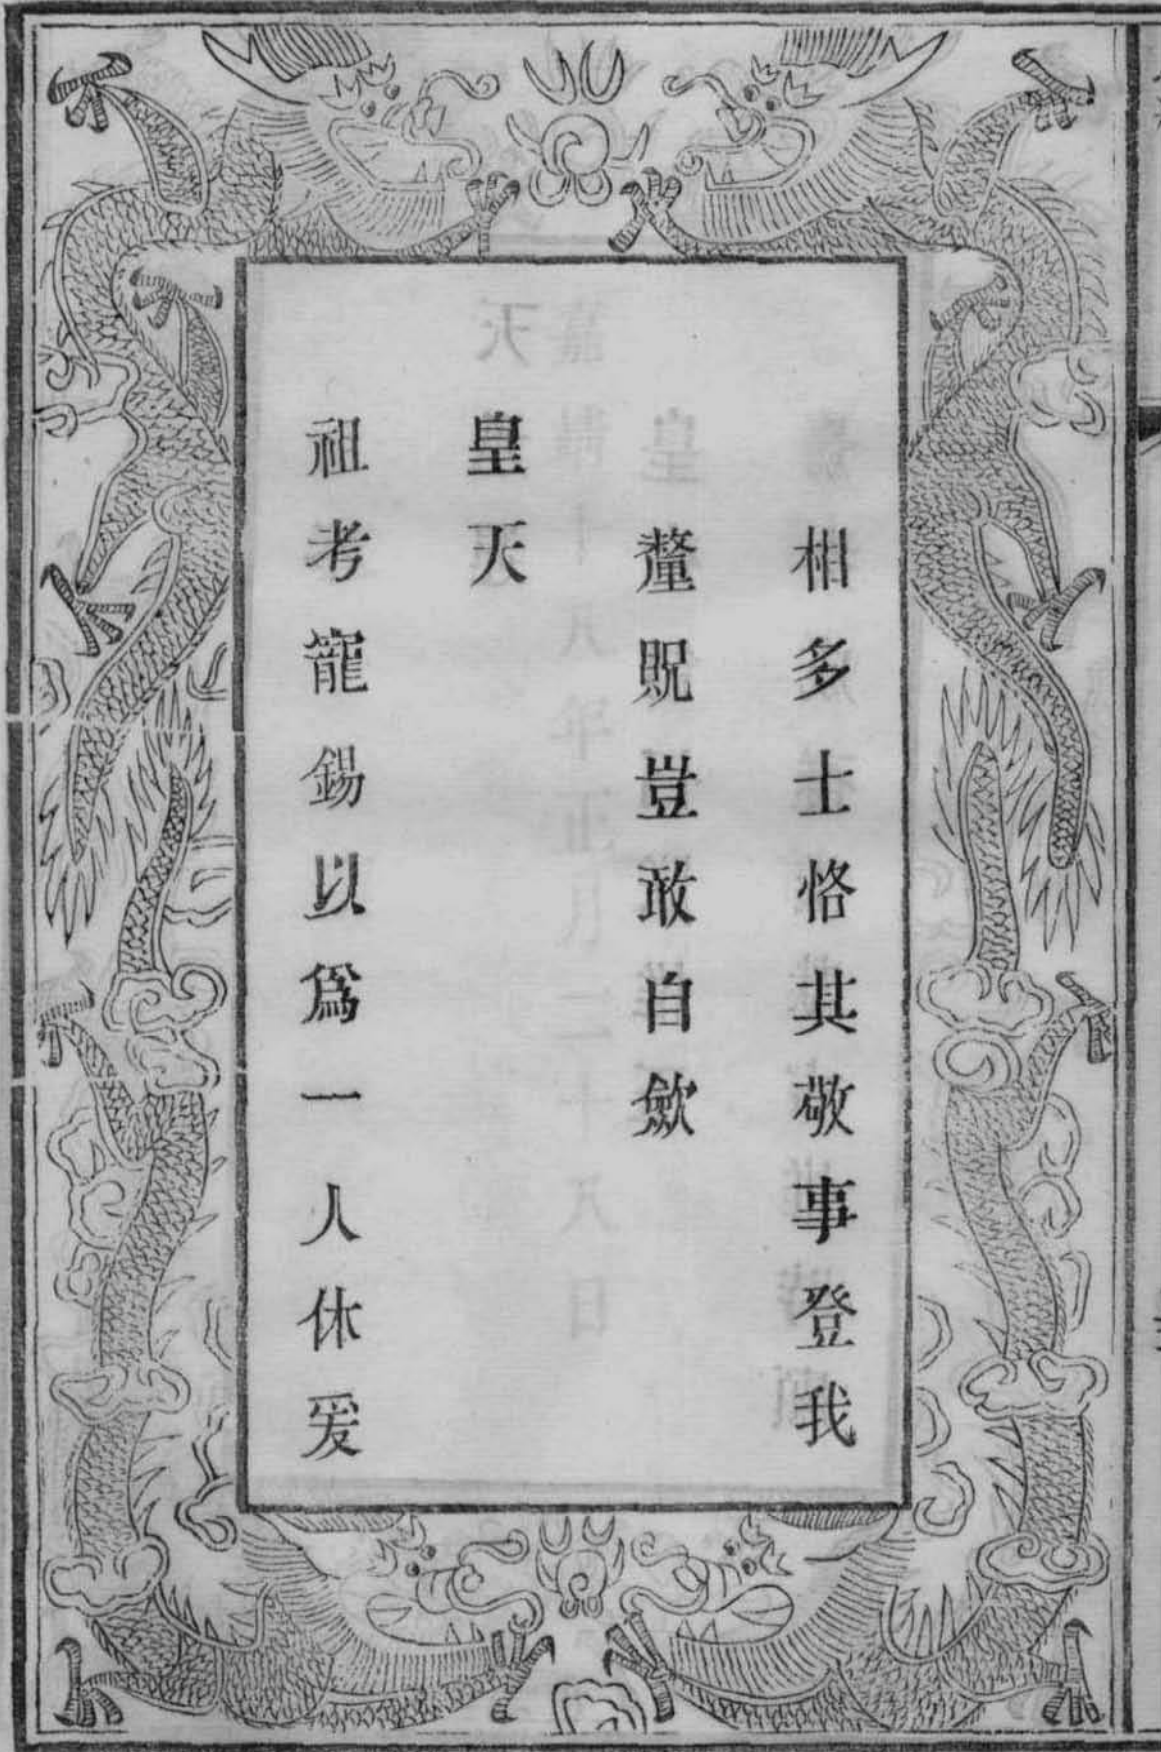 相多士恪其敬事登我
釐貺豈敢自歛
皇天
祖考寵錫以爲一人休爰